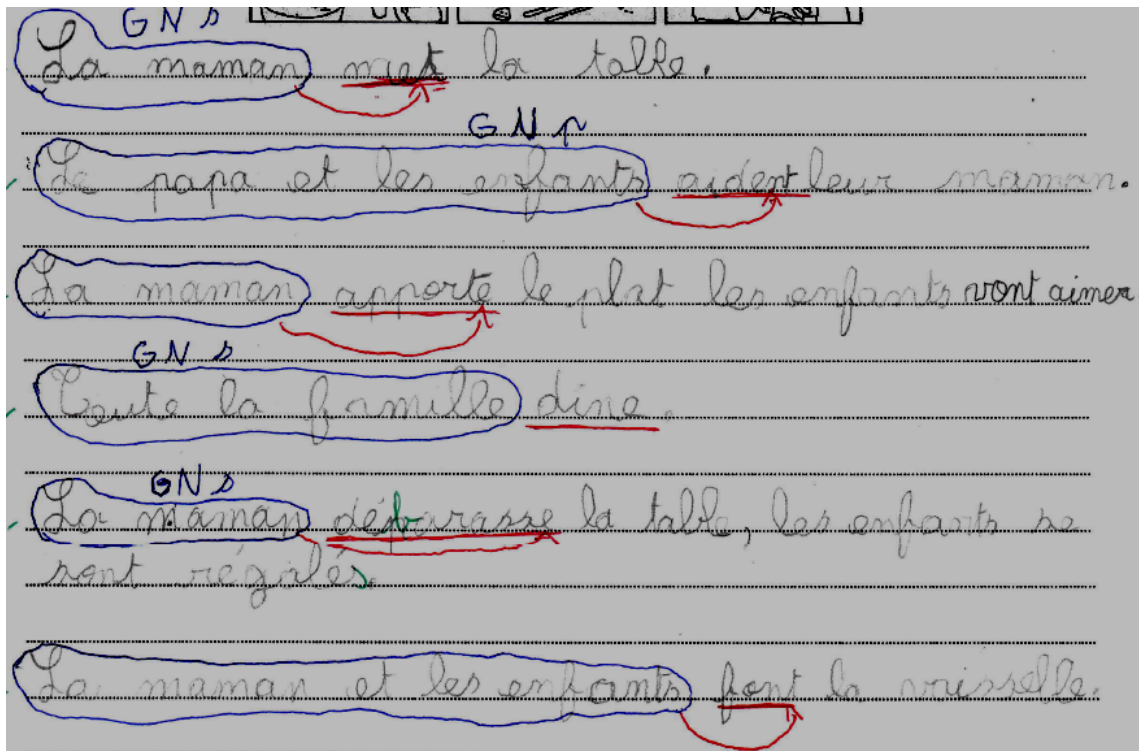 GN s
La maman met la table.
GN p
Le papa et les enfants aident leur maman.
La maman apporte le plat les enfants vont aimer
GN s
Toute la famille dine.
GN s
La maman débarasse la table, les enfants se
sont régalés.
La maman et les enfants font la vaisselle.